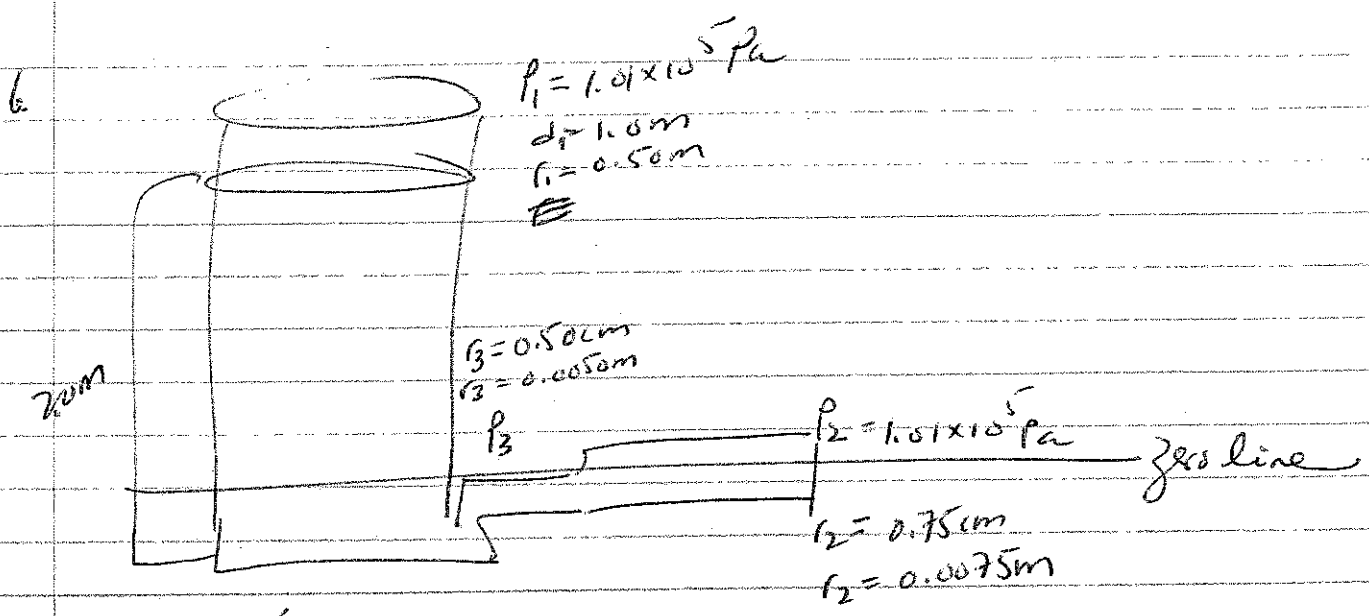 6.
P₁ = 1.01×10⁵ Pa
d₁ = 1.0m
r₁ = 0.50m
r₃ = 0.50cm
r₃ = 0.0050m
2.0m
P₃
P₂ = 1.01×10⁵ Pa
Zero line
r₂ = 0.75cm
r₂ = 0.0075m